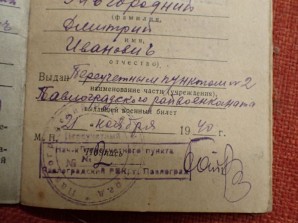 (фамилия,
Дмитрий
имя,
Ивановичъ
отчество)
Выдан Пересчетным пунктом № 2
наименование части (учреждения),
Павлоградского райвоенкомата
выдавшей военный билет
21 ноября 1940 г.
М. П.
Нач. Пересчетного пункта
№ 2
Павлоградский РВК, г. Павлоград